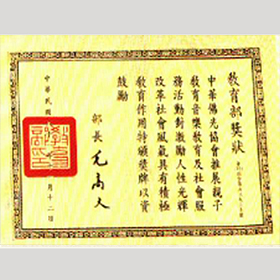 教育部獎狀
中華佛光協會推展親子
教育音樂教育及社會服
務活動對激勵人性光輝
改革社會風氣具有積極
教育作用特頒獎牌以資
鼓勵
部長
中華民國
月十二日